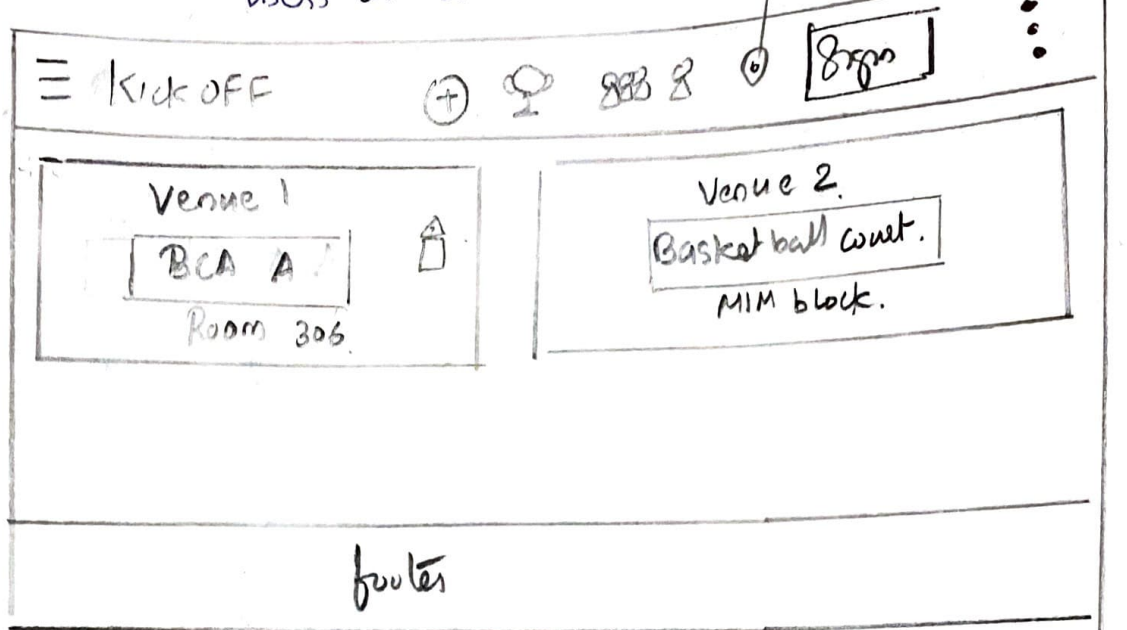 Kick OFF
Sign
Venue 1
BCA A
Room 306
Venue 2.
Basketball court.
MIM block.
footer